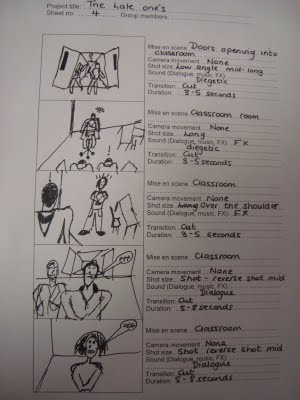 Project title: The Late one's
Sheet no: 4 Group members:
Mise en scene Doors opening into
classroom
Camera movement None
Shot size Low angle mid-long
Sound (Dialogue, music, FX)
Diegetic
Transition: Cut
Duration: 3-5 seconds
Mise en scene: Classroom room
Camera movement None
Shot size: Long
Sound (Dialogue, music, FX) FX
diegetic
Transition: Cut
Duration: 3-5 seconds
Mise en scene: Classroom
Camera movement None
Shot size: Over the shoulder
Sound (Dialogue, music, FX) FX
Transition: Cut
Duration: 3-5 seconds
Mise en scene: Classroom
Camera movement None
Shot size: Shot - reverse shot mid
Sound (Dialogue, music, FX):
Dialogue
Transition: Cut
Duration: 5-8 seconds
Mise en scene: Classroom
Camera movement: None
Shot size: Shot reverse shot mid
Sound (Dialogue, music, FX)
Dialogue
Transition: Cut
Duration: 5-8 seconds